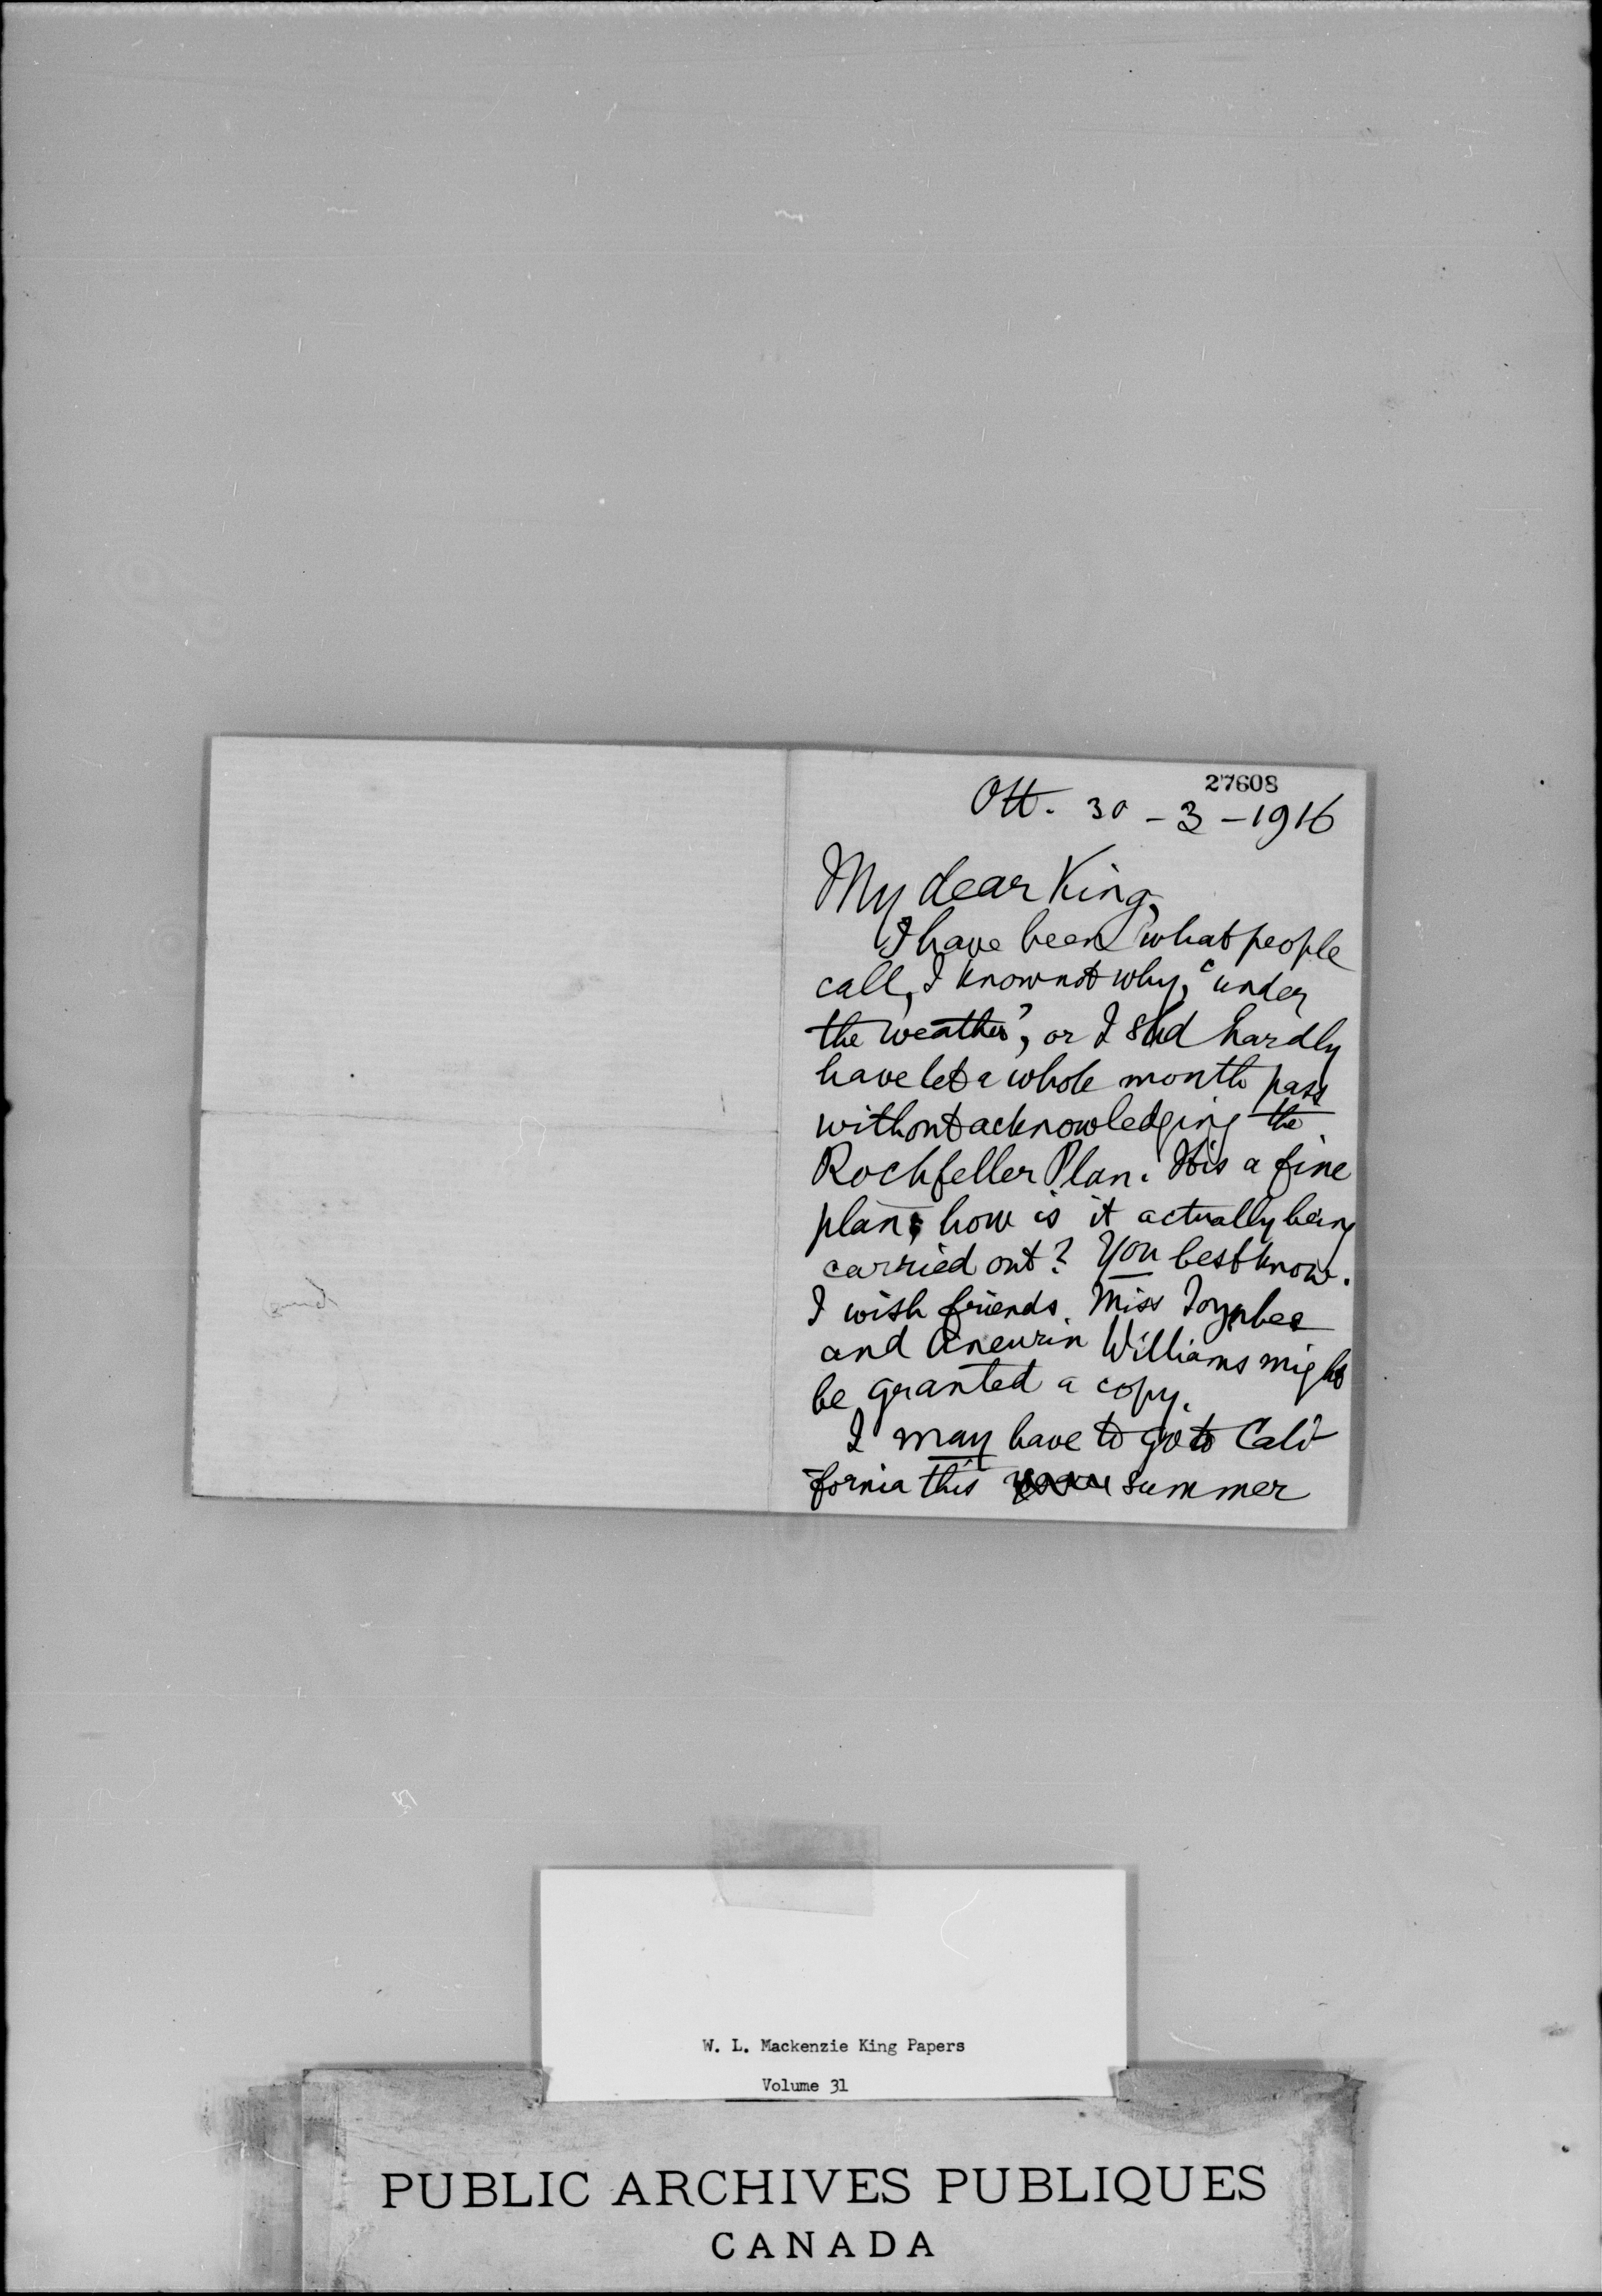 27608
Ott. 30 - 3 - 1916
My dear King,
I have been what people
call, I know not why, 'under
the weather', or I shd hardly
have let a whole month pass
without acknowledging the
Rockfeller Plan. It is a fine
plan; how is it actually being
carried out? You best know.
I wish friends Miss Toynbee
and Aneurin Williams might
be granted a copy.
I may have to go to Cali-
fornia this summer
W. L. Mackenzie King Papers
Volume 31
PUBLIC ARCHIVES PUBLIQUES
CANADA